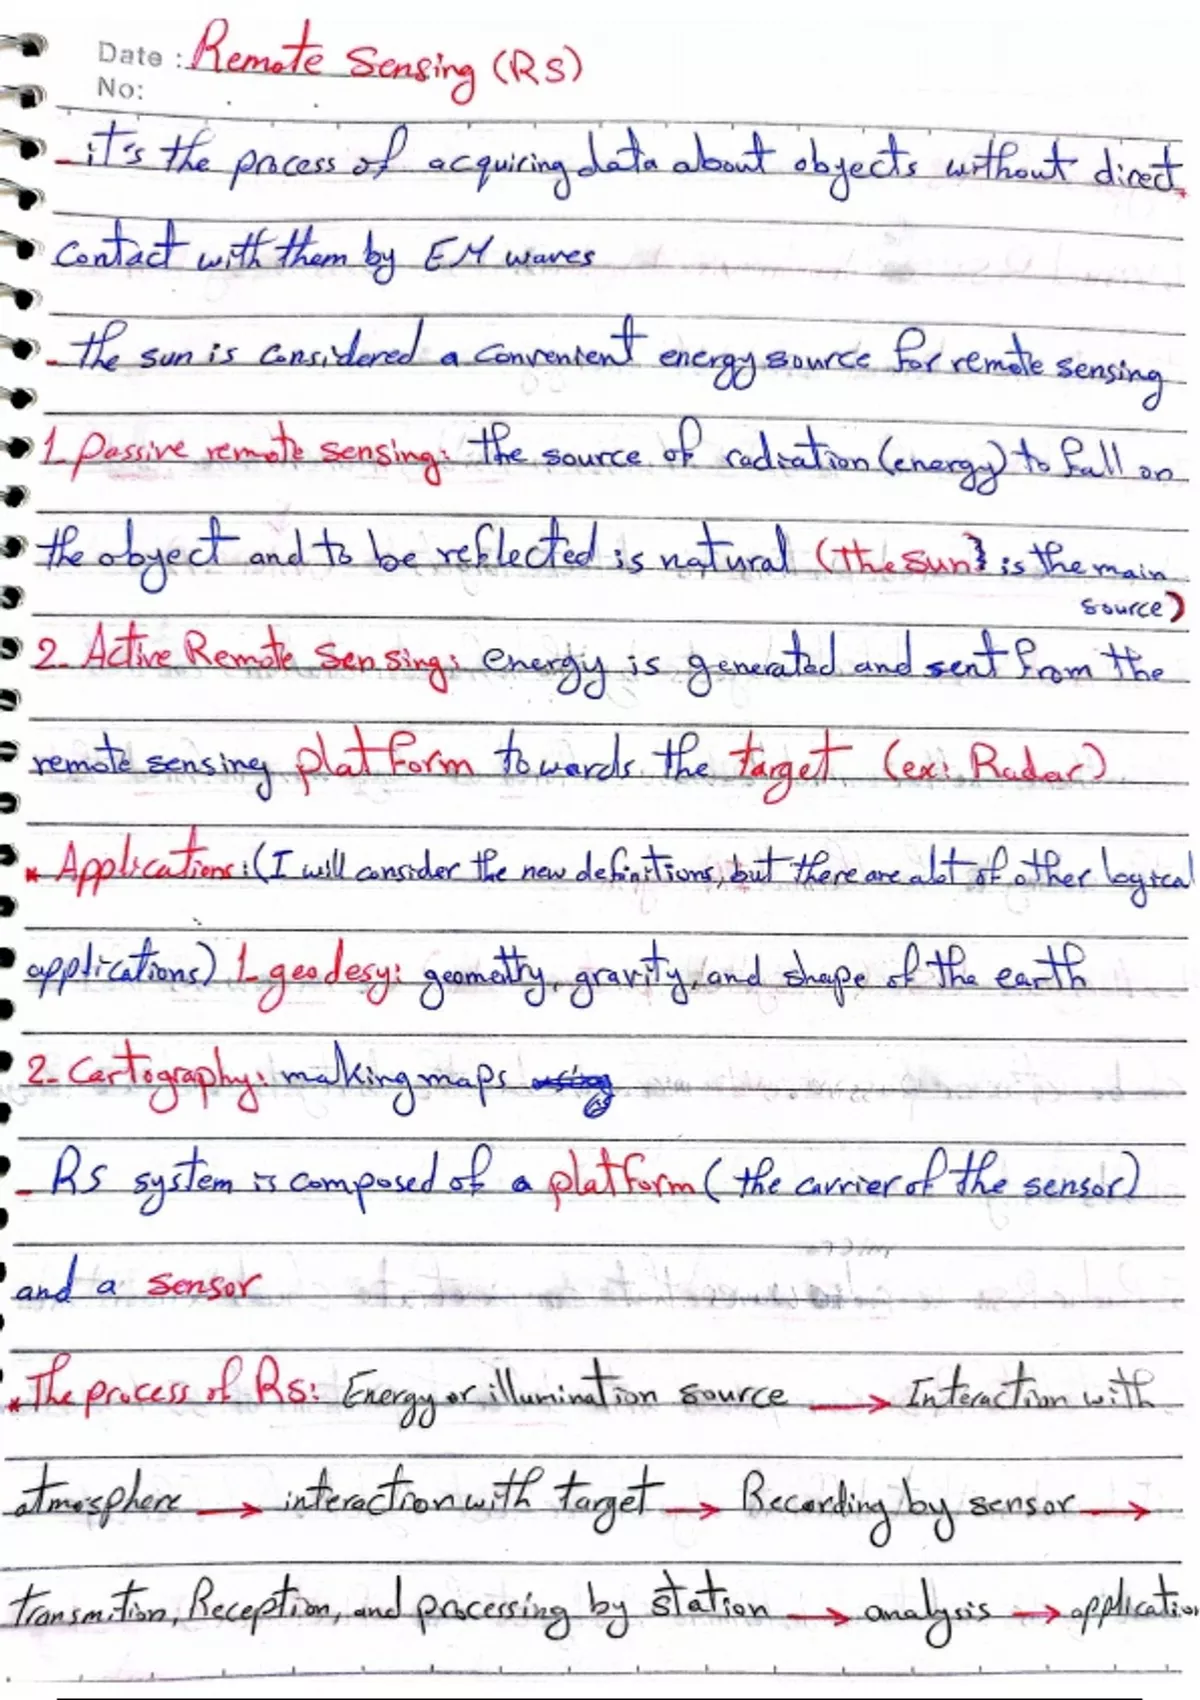 Date : Remote Sensing (RS)
No:
- it's the process of acquiring data about objects without direct
contact with them by EM waves
- the sun is considered a convenient energy source for remote sensing
1- Passive remote sensing: the source of radiation (energy) to fall on
the object and to be reflected is natural (the sun} is the main
source)
2- Active Remote Sensing: energy is generated and sent from the
remote sensing platform towards the target (ex: Radar)
* Applications: (I will consider the new definitions, but there are alot of other logical
applications) 1- geodesy: geometry, gravity, and shape of the earth
2- Cartography: making maps
- RS system is composed of a platform (the carrier of the sensor)
and a sensor
* The process of RS: Energy or illumination source → Interaction with
atmosphere → interaction with target → Recording by sensor →
transmition, Reception, and processing by station → analysis → application